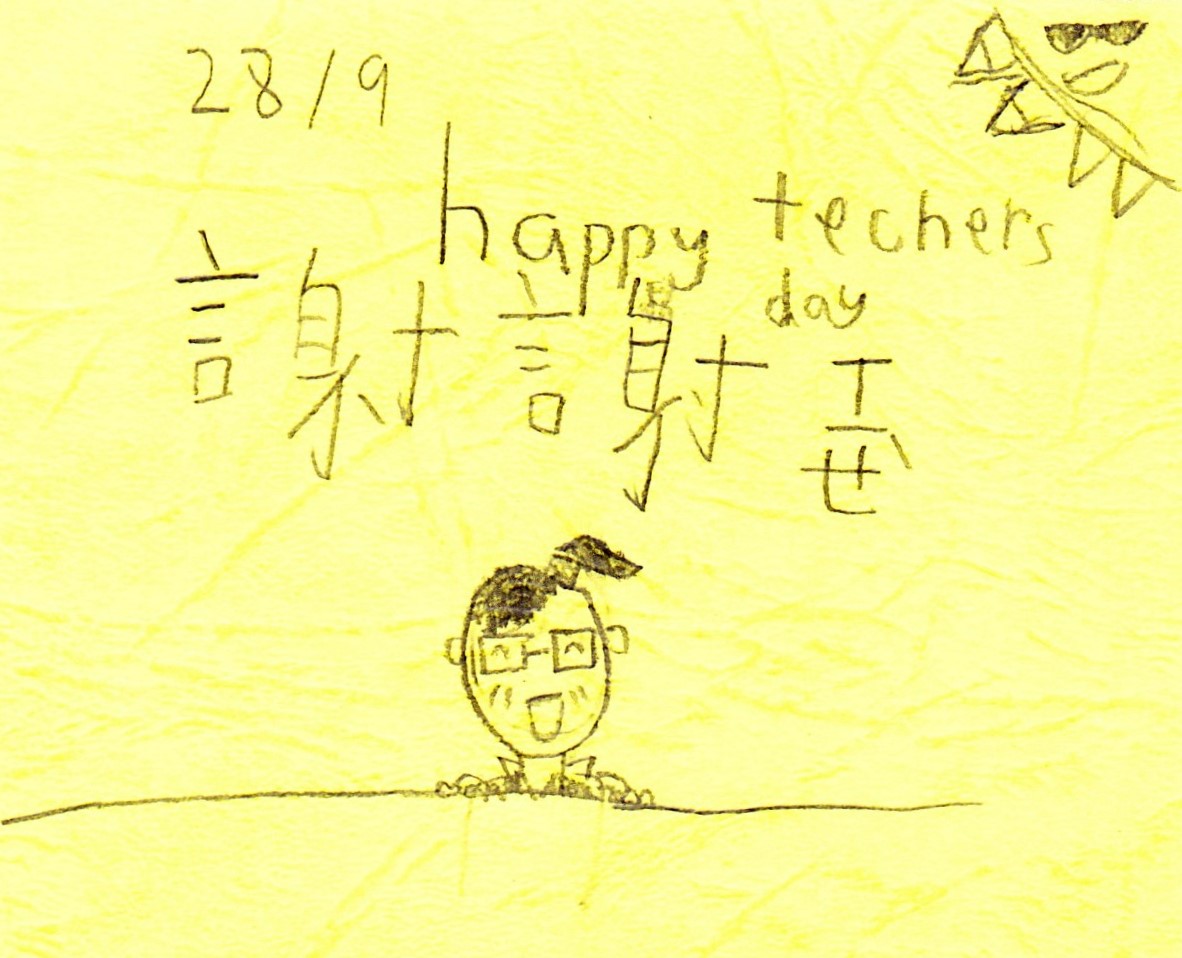 28/9
happy techers
day
謝謝